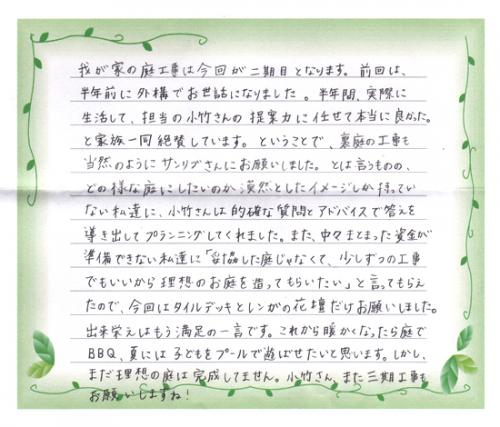 我が家の庭工事は今回が二期目となります。前回は、
半年前に外構でお世話になりました。半年間、実際に
生活して、担当の小竹さんの提案力に任せて本当に良かった。
と家族一同絶賛しています。ということで、裏庭の工事も
当然のようにサンリブさんにお願いしました。とは言うものの、
どの様な庭にしたいのか漠然としたイメージしか持ってい
ない私達に、小竹さんは的確な質問とアドバイスで答えを
導き出してプランニングしてくれました。また、中々まとまった資金が
準備できない私達に「妥協した庭じゃなくて、少しずつの工事
でもいいから理想のお庭を造ってもらいたい」と言ってもらえ
たので、今回はタイルデッキとレンガの花壇だけお願いしました。
出来栄えはもう満足の一言です。これから暖かくなったら庭で
BBQ、夏には子どもをプールで遊ばせたいと思います。しかし、
まだ理想の庭は完成してません。小竹さん、また三期工事も
お願いしますね!